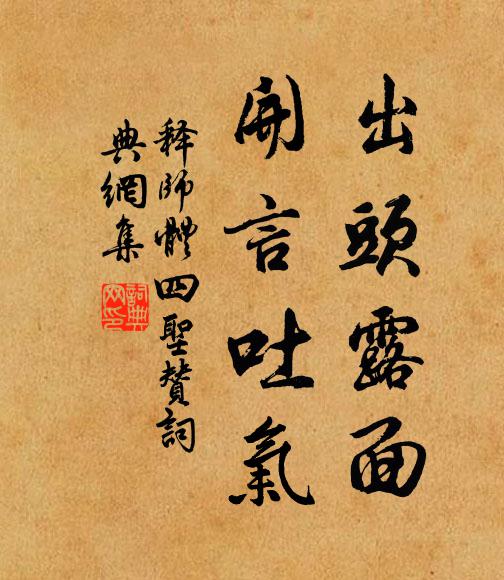 出頭露面
開言吐氣
释師體四聖贊詞
典網集
詞典網印